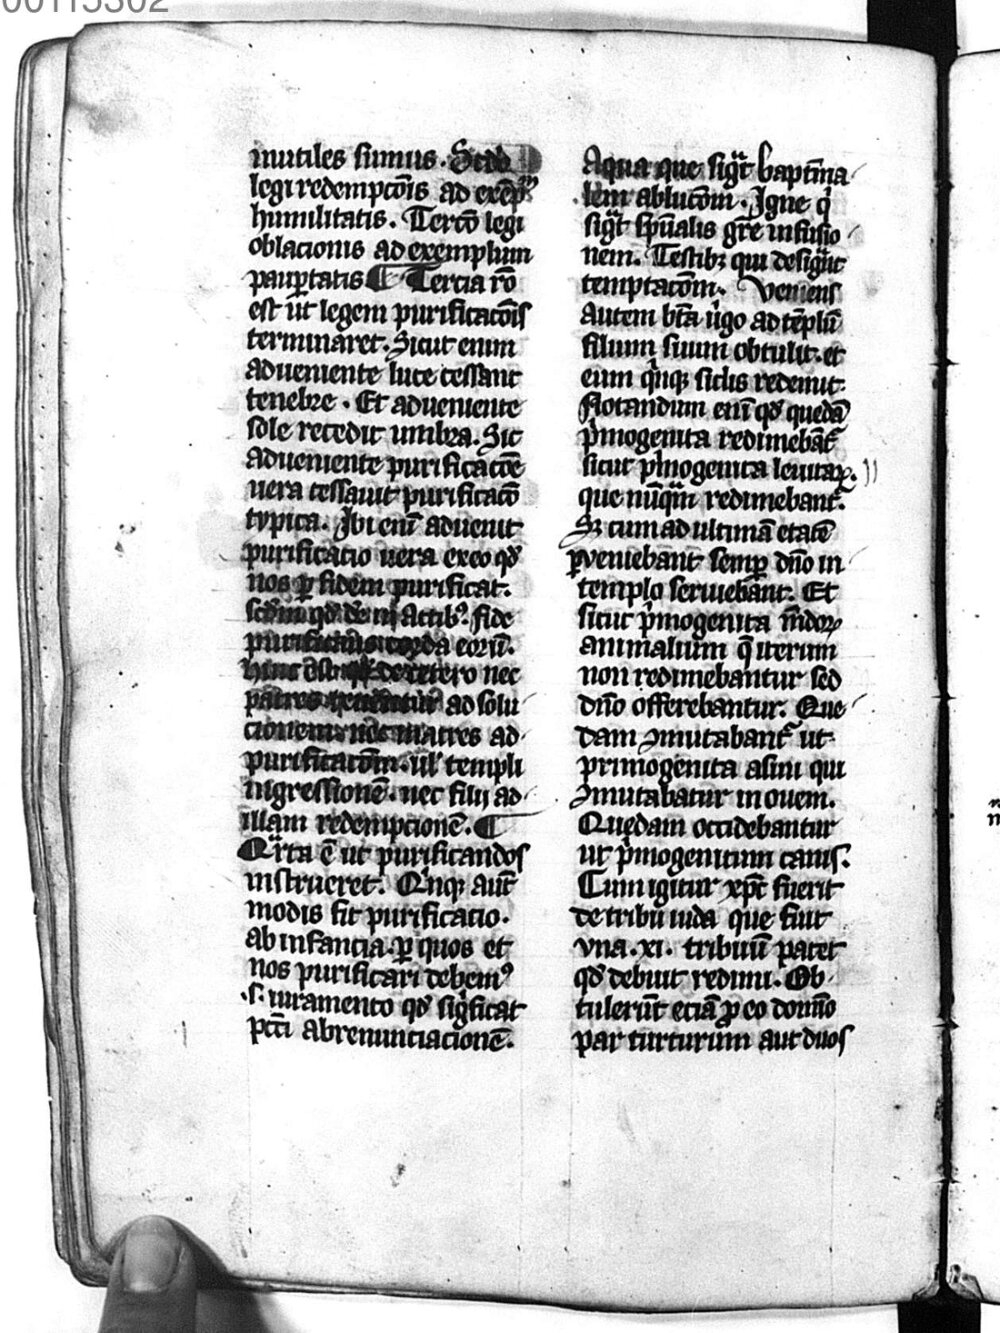 00115302
inutiles sumus. Scdo
legi redempcõis ad exẽpᵐ
humilitatis. Tercõ legi
oblacionis ad exemplum
paup̱tatis ¶ Tercia rõ
est ut legem purificacõis
terminaret. Sicut enim
adueniente luce cessant
tenebre. Et adueniente
sole recedit umbra. Sic
adueniente purificacõe
uera cessauit purificacõ
typica. Ibi enĩ aduenit
purificatio uera ex eo qd̉
nos p̱ fidem purificat.
scd̃m qd̉ dr̃ in Actibꝰ. fide
purificans corda eorũ.
nec
ad solu
cionem nec matres ad
purificacõm. ul̉ templi
ingressionẽ. nec filij ad
illam redempcionẽ. ¶
Qͣrta ẽ ut purificandos
instrueret. Qⁱnqꝫ aut̃
modis fit purificatio.
ab infancia. p̱ quos et
nos purificari debemꝰ
.s. iuramento qd̉ sigͥficat
pcc̃i abrenunciacionẽ.
Aqua que sigͣt baptisma
lem ablucõm. Igne qͥ
sigͣt sp̃ualis gr̃e infusio
nem. Testibꝫ qui designãt
temptacõm. Veniens
autem btã uͥgo ad tẽplũ
filium suum obtulit. et
eum qͥnqꝫ siclis redemit.
Notandum enĩ qd̉ quedã
pͥmogenita redimebãt̃
sicut pͥmogenita leuitaꝝ.
que nũqͣm redimebant̃.
Sꝫ cum ad ultimã etatẽ
p̱veniebant semp̱ dño in
templo seruiebant. Et
sicut pͥmogenita mũdoꝝ
animalium qͣ̃ iterum
non redimebantur sed
dño offerebantur. Que
dam ꝯmutabant̃ ut
primogenita asini qui
ꝯmutabatur in ouem.
Quedam occidebantur
ut pͥmogenitum canis.
Cum igitur xp̃c fuerit
de tribu iuda que fuit
vna .xi. tribuũ patet
qd̉ debuit redimi. Ob
tulerũt eciã ꝓ eo domĩo
par turturum aut duos